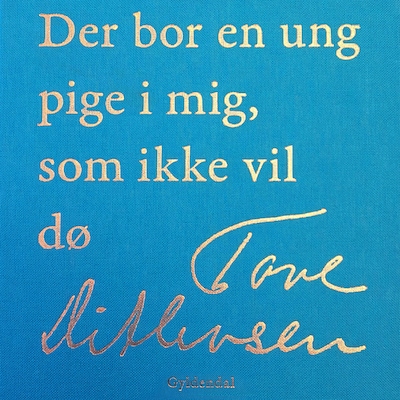 Der bor en ung
pige i mig,
som ikke vil
dø
Tove
Ditlevsen
Gyldendal